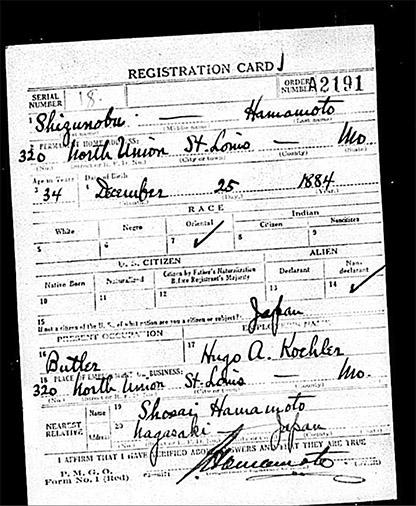 REGISTRATION CARD
SERIAL NUMBER 18. ORDER NUMBER A2191
1 Shizunobu — Hamamoto
(Middle name) (Last name)
2 PERMANENT HOME ADDRESS:
320 North Union St. Louis — Mo.
(City or town) (County) (State)
Age in Years Date of Birth
3 34 4 December 25 1884
(Day) (Year)
RACE
White Negro Oriental Indian
Citizen Noncitizen
5 6 7 ✓ 8 9
U. S. CITIZEN ALIEN
Native Born Naturalized Citizen by Father's Naturalization Before Registrant's Majority Declarant Non-declarant
10 11 12 13 14 ✓
15 Japan
If not a citizen of the U. S., of what nation are you a citizen or subject?
PRESENT OCCUPATION EMPLOYER'S NAME
16 Butler 17 Hugo A. Koehler
18 PLACE OF EMPLOYMENT OR BUSINESS:
320 North Union St. Louis — Mo.
NEAREST RELATIVE Name 19 Shosaij Hamamoto
Address 20 Nagasaki — Japan
I AFFIRM THAT I HAVE VERIFIED ABOVE ANSWERS AND THAT THEY ARE TRUE
P. M. G. O.
Form No. 1 (Red) S Hamamoto